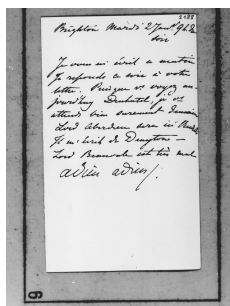 2188
Brighton Mardi 2 Janv. 
soir
Je vous ai écrit ce matin
Je réponds ce soir à votre
lettre. Puisque vs voyez
Duchatel, je vs
attends bien surement demain
Lord Aberdeen sera ici
Il m'écrit de Drayton
Lord Beauvale est très mal
adieu adieu.